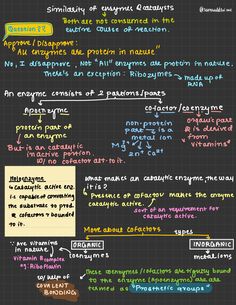 Similarity of enzymes & catalysts
Both are not consumed in the
entire course of reaction.
Question ??
Approve / Disapprove:
"All enzymes are protein in nature"
No, I disapprove, not "All" enzymes are protein in nature.
There's an exception: Ribozymes
made up of
RNA
An enzyme consists of 2 portions/parts
Apoenzyme
cofactor/coenzyme
protein part of
an enzyme
But is a catalytic
inactive portion
w/ no cofactor att. to it.
non-protein
part is a
metal ion
organic part
& is derived
from
Mg2+
Zn2+ Ca2+
"Vitamins"
Holoenzyme
catalytic active enz.
i.e. capable of converting
the substrate to prod.
& cofactor is bounded
to it.
What makes an enzyme catalytic the way
it is?
Presence of cofactor makes the enzyme
catalytic active.
sort of an requirement for
catalytic active.
More about cofactors
types
ORGANIC
INORGANIC
are vitamins
in nature
coenzymes
metal ions
vitamin B complex
eg. Riboflavin
these coenzymes/cofactors are tightly bound
to the enzyme (Apoenzyme) are are
termed as "Prosthetic groups"
w/ help of
COVALENT
BONDING